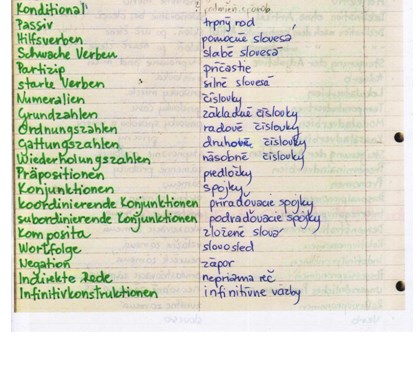 Konditional
Passiv trpný rod
Hilfsverben pomocné slovesá
Schwache Verben slabé slovesá
Partizip príčastie
starke Verben silné slovesá
Numeralien číslovky
Grundzahlen základné číslovky
Ordnungszahlen radové číslovky
Gattungszahlen druhové číslovky
Wiederholungszahlen násobné číslovky
Präpositionen predložky
Konjunktionen spojky
koordinierende Konjunktionen priraďovacie spojky
subordinierende Konjunktionen podraďovacie spojky
Komposita zložené slová
Wortfolge slovosled
Negation zápor
Indirekte Rede nepriama reč
Infinitivkonstruktionen infinitívne väzby